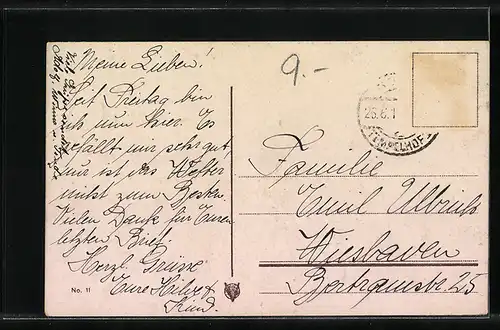 Meine Lieben!
Seit Freitag bin
ich nun hier. Es
gefällt mir sehr gut,
nur ist das Wetter
nicht zum Besten.
Vielen Dank für Euren
letzten Brief.
Herzl. Grüsse
Eure
Kind.
No. 11
9.-
25.6.1
TEMPELHOF
Familie
Emil
Wiesbaden
Bertramstr. 25